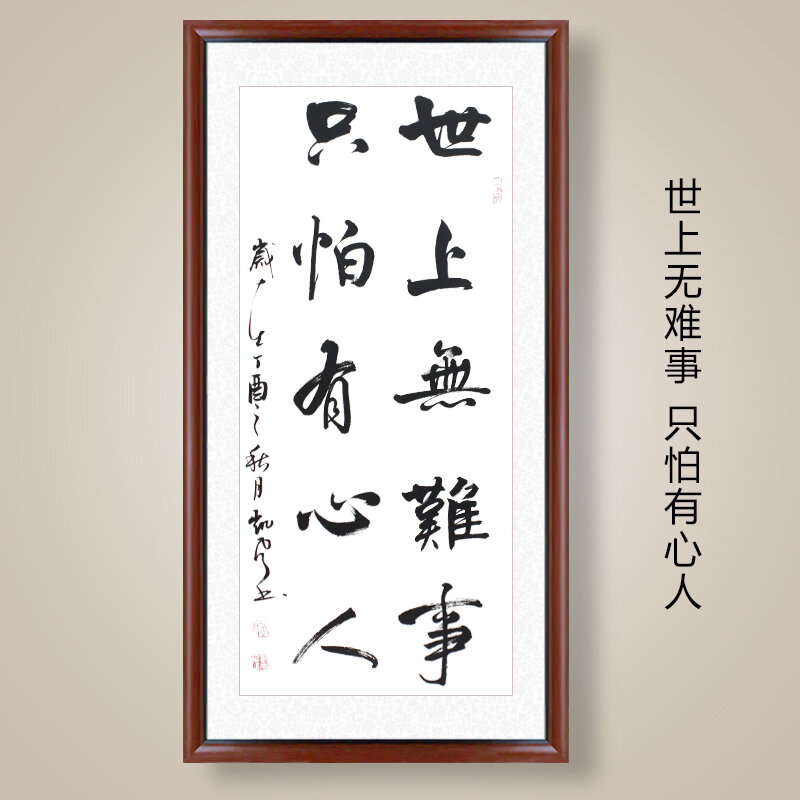 世上無難事
只怕有心人
歲在丁酉之秋月
世上无难事 只怕有心人